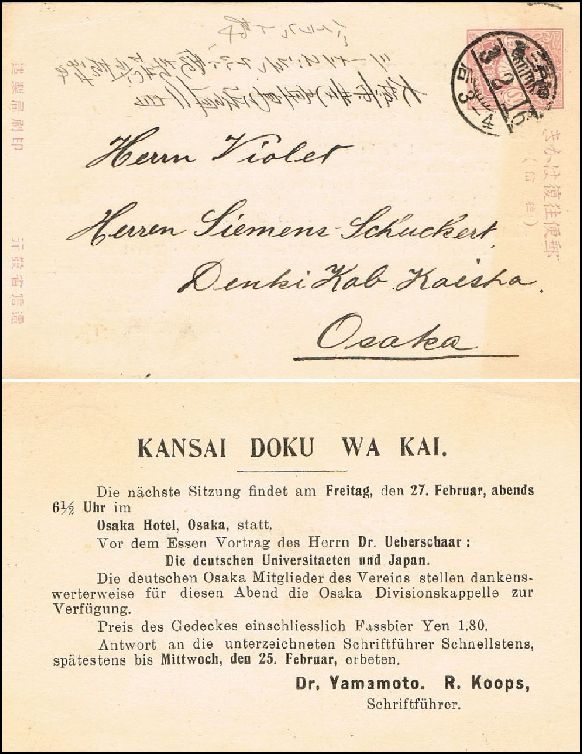 Herrn Violet
Herren Siemens-Schuckert.
Denki Kab Kaisha.
Osaka.
郵便往復はかき
印刷局製造
逓信省發行
KANSAI DOKU WA KAI.
Die nächste Sitzung findet am Freitag, den 27. Februar, abends
6½ Uhr im
Osaka Hotel, Osaka, statt.
Vor dem Essen Vortrag des Herrn Dr. Ueberschaar:
Die deutschen Universitaeten und Japan.
Die deutschen Osaka Mitglieder des Vereins stellen dankens-
werterweise für diesen Abend die Osaka Divisionskappelle zur
Verfügung.
Preis des Gedeckes einschliesslich Fassbier Yen 1,80.
Antwort an die unterzeichneten Schriftführer Schnellstens,
spätestens bis Mittwoch, den 25. Februar, erbeten.
Dr. Yamamoto. R. Koops,
Schriftführer.